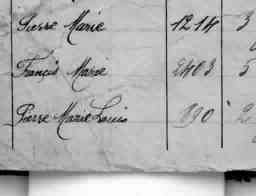 Pierre Marie 1214 3
Francis Marie 2403 5
Pierre Marie Louis 890